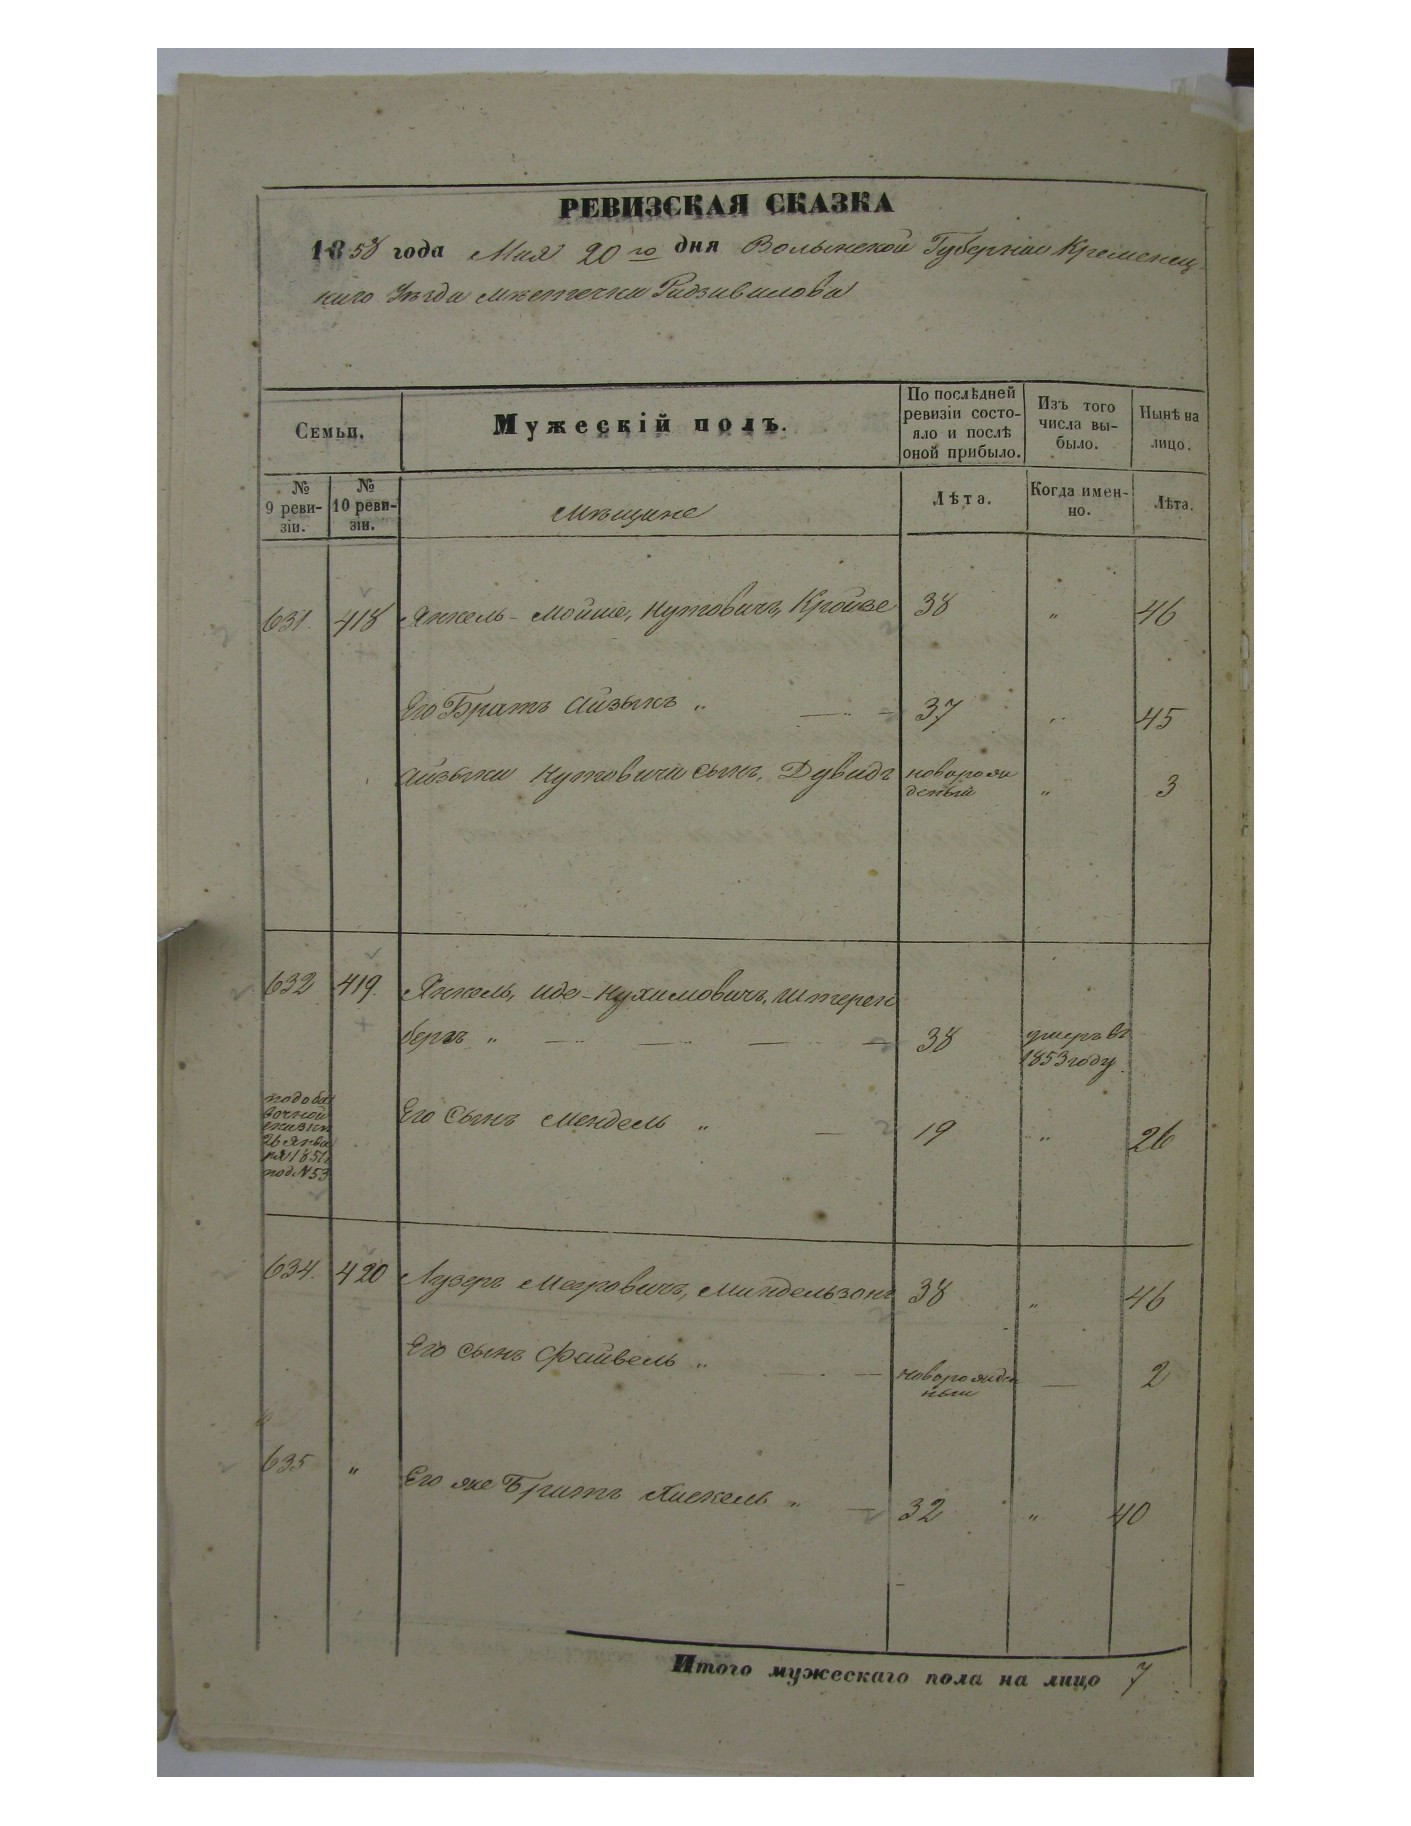 РЕВИЗСКАЯ СКАЗКА
1858 года Мая 20го дня Волынской Губерніи Кременец-
каго Уѣзда мѣстечка Радзивилова
Семьи.
Мужескій полъ.
По послѣдней
ревизіи состо-
яло и послѣ
оной прибыло.
Изъ того
числа вы-
было.
Нынѣ на
лицо.
№
9 реви-
зіи.
№
10 реви-
зіи.
Мѣщане
Лѣта.
Когда имен-
но.
Лѣта.
631. 418 Янкель-Мойше, Нутовичъ, Кройзе 38 " 46
Его Братъ Айзыкъ " 37 " 45
Айзыка Нутовича сынъ, Дувидъ новорож 3
деный "
632 419. Янкель, Иде-Нухимовичъ, Штерен
бергъ " 38 умеръ въ
1853 году.
по доба
вочной
сказки
26 Янва
ря 1851
под N 53
Его Сынъ Мендель " 19 " 26
634. 420 Лузеръ Мееровичъ, Миндельзонъ 38 " 46
Его сынъ Файвель " новорожден 2
ный
635 " Его же Братъ Хаскель " 32 " 40
Итого мужескаго пола на лицо 7